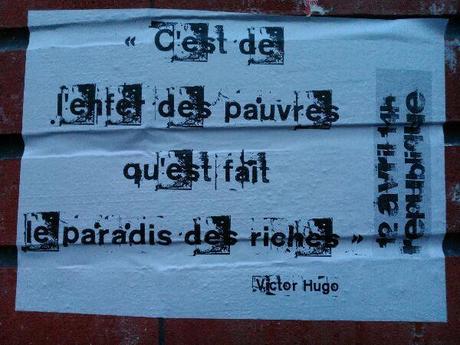 « C'est de
l'enfer des pauvres
qu'est fait
le paradis des riches »
Victor Hugo
12 avril 14h
republique